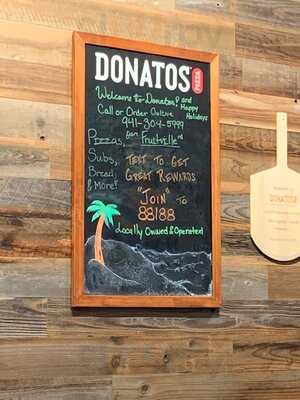 DONATOS PIZZA
Welcome to Donatos! and
Happy
Holidays
Call or Order Online
941-304-5799
on Fruitville rd
Pizzas,
Subs,
Bread,
& More!
TEXT TO GET
GREAT REWARDS
"JOIN" TO
88188
Locally Owned & Operated!
DONATOS